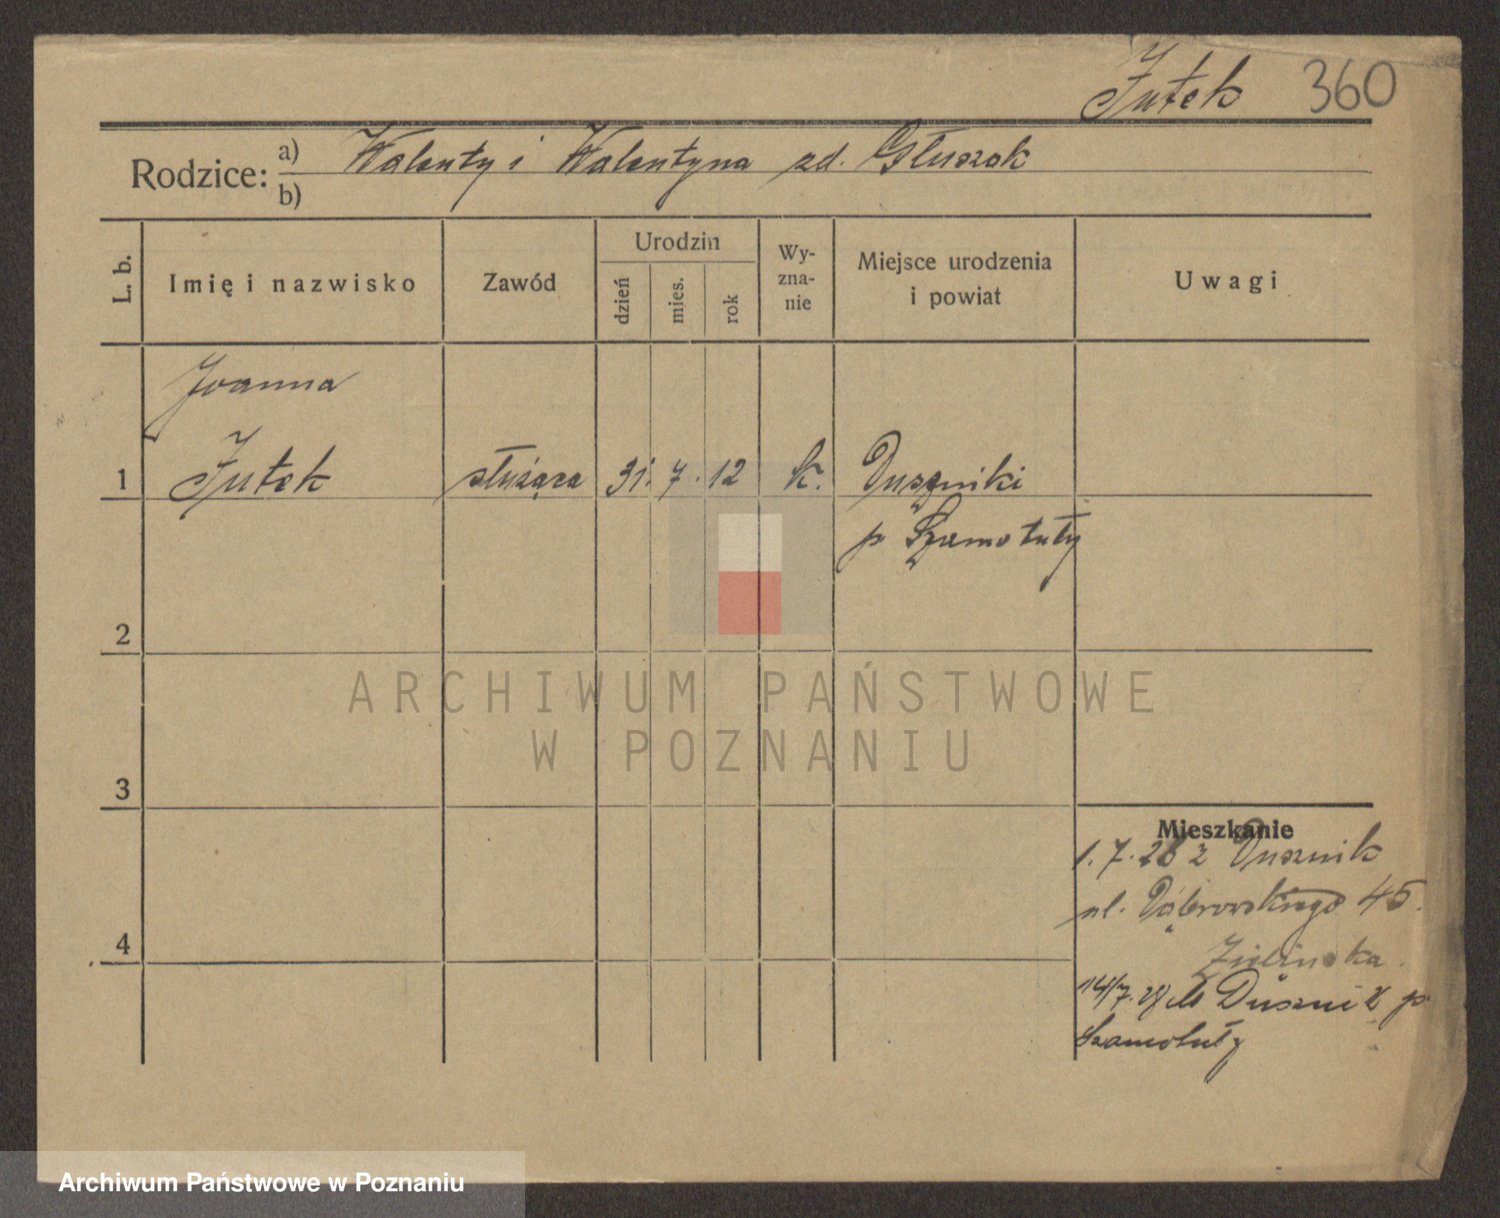 Jutek 360
Rodzice: a) Walenty i Walentyna zd. Głuszak
b)
L. b.
Imię i nazwisko
Zawód
Urodzin
dzień
mies.
rok
Wy-
zna-
nie
Miejsce urodzenia
i powiat
Uwagi
Joanna
1 Jutek służąca 31. 7. 12 k. Duszniki
p Szamotuły
2
ARCHIWUM PAŃSTWOWE
W POZNANIU
3
Mieszkanie
1. 7. 28 z Dusznik
ul. Dąbrowskiego 45.
4
Zielińska
14/7. 28 do Dusznik p
Szamotuły
Archiwum Państwowe w Poznaniu